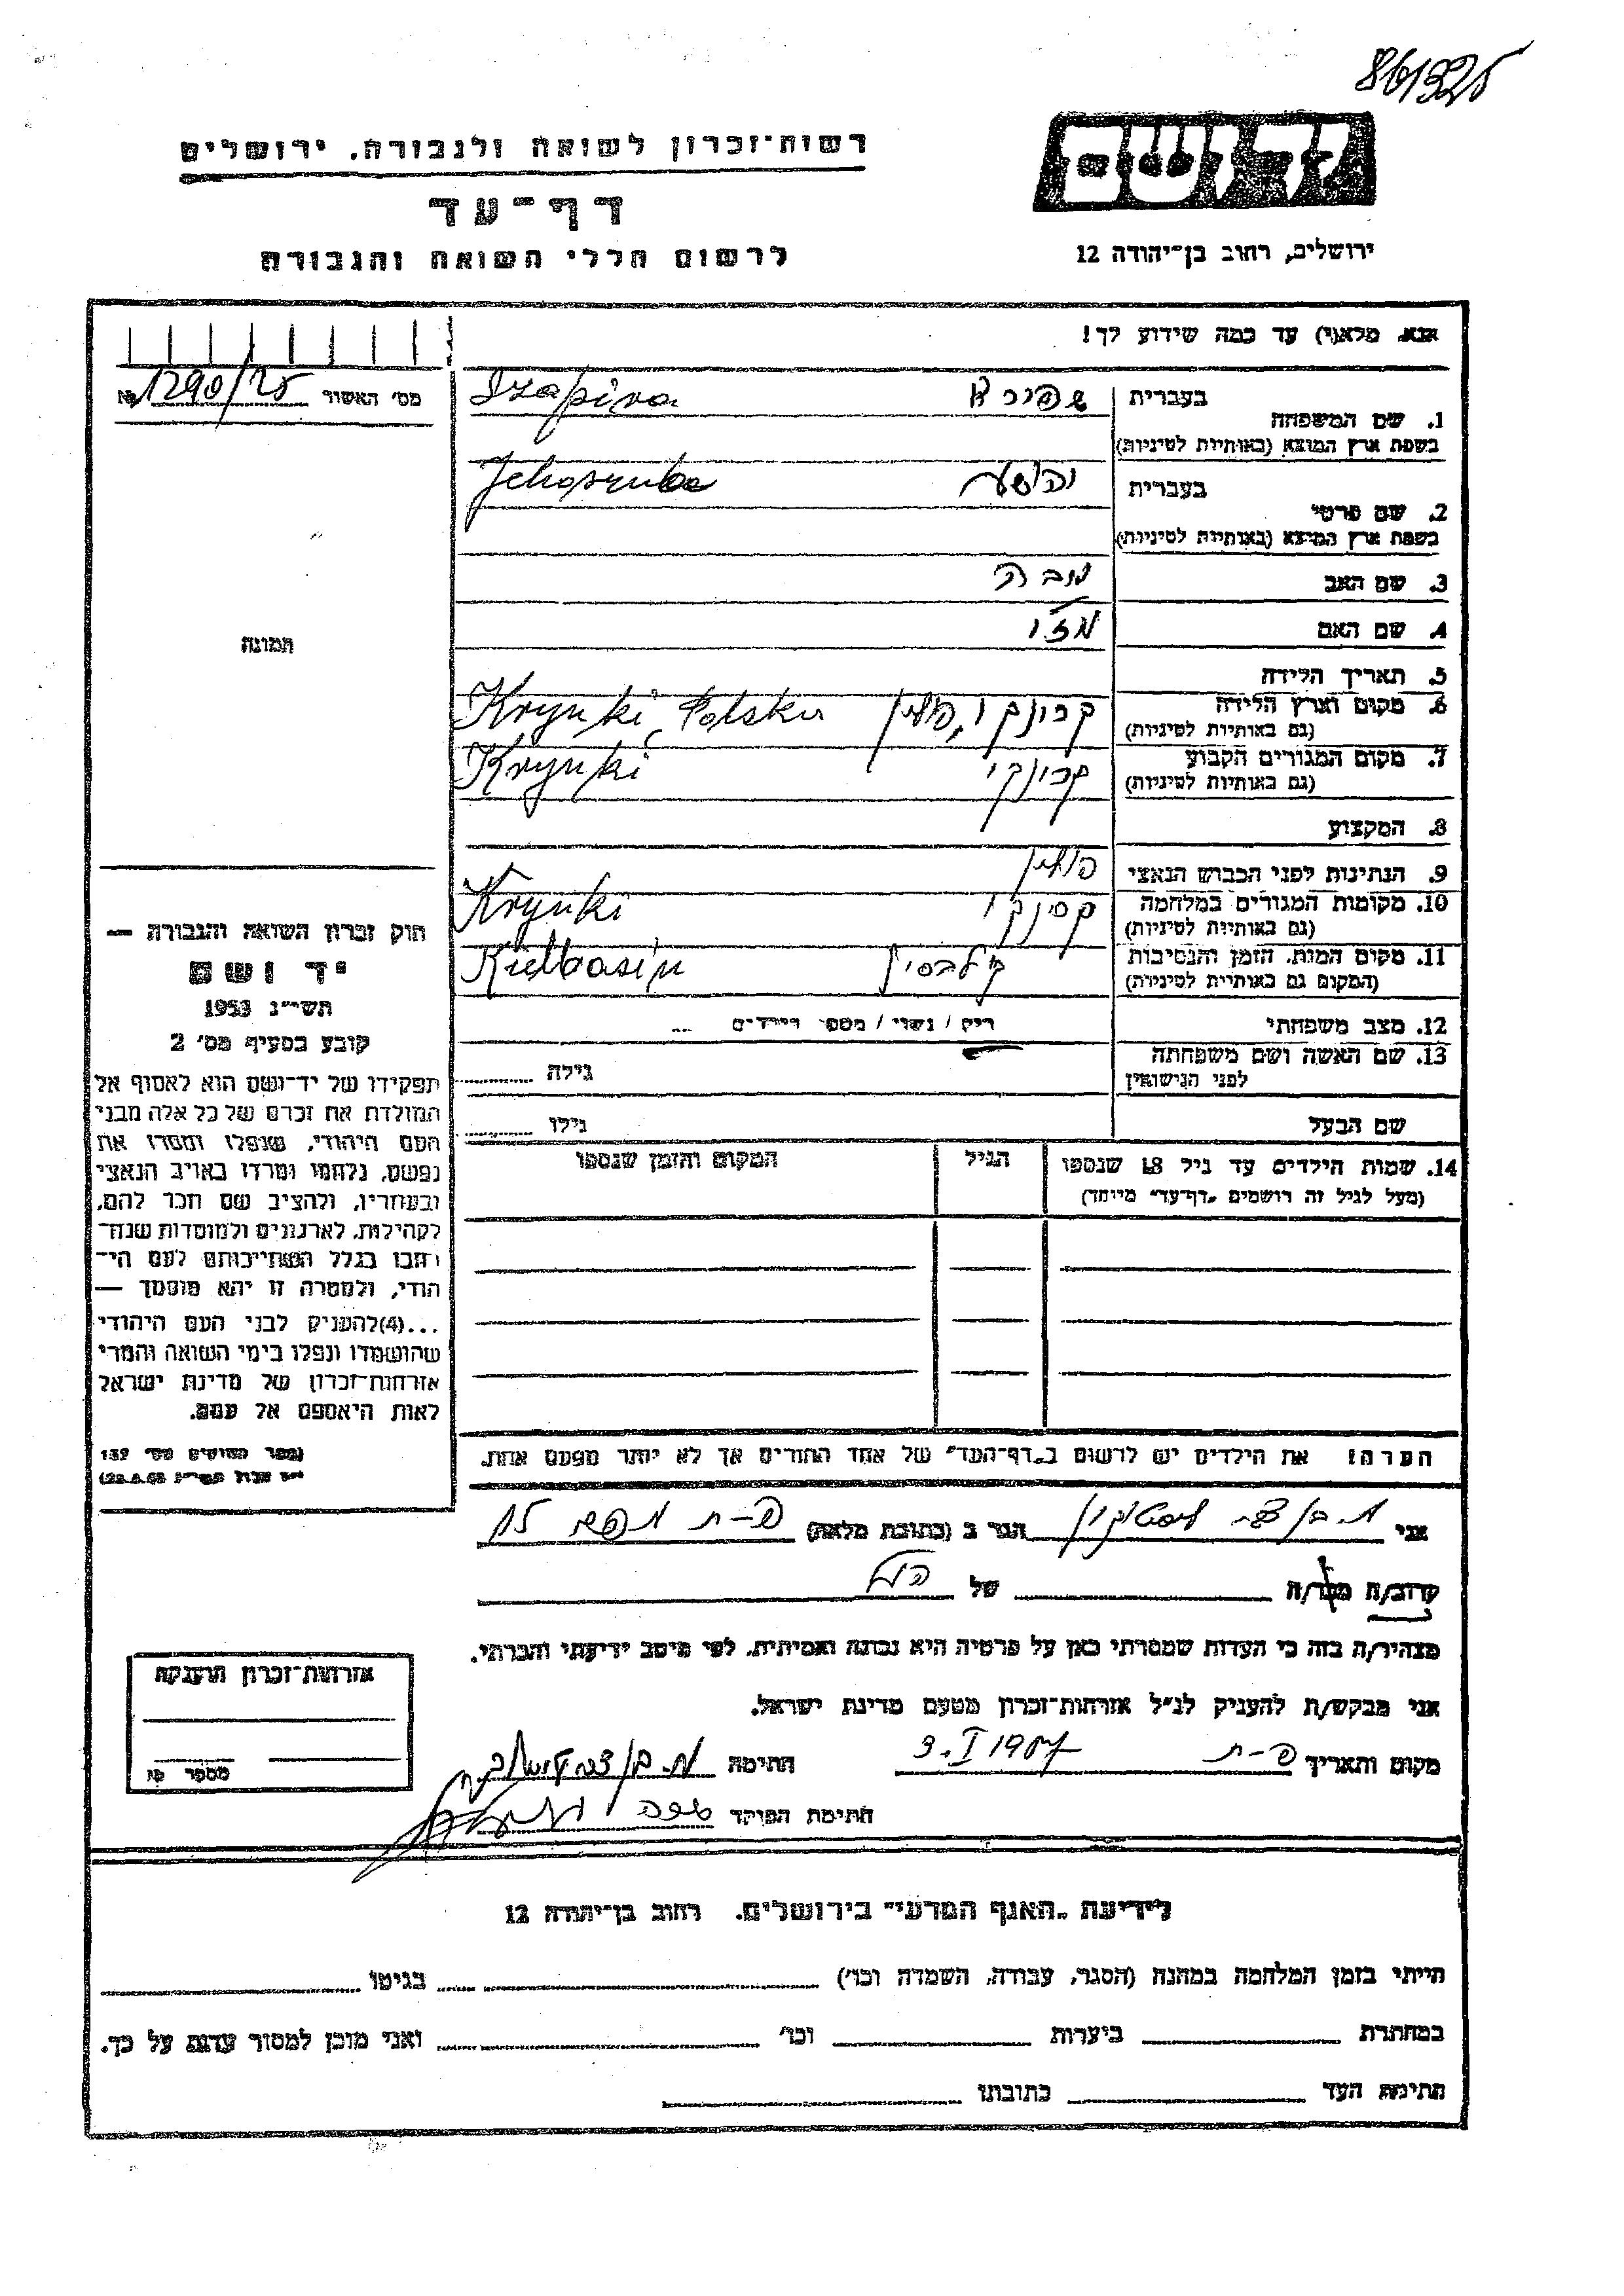 861325
רשות־זכרון לשואה ולגבורה. ירושלים
דף־עד
לרשום חללי השואה והגבורה
יד ושם
ירושלים, רחוב בן־יהודה 12
אנא, מלא(י) עד כמה שידוע לך!
מס׳ האשור № 1290/25
תמונה
1. שם המשפחה
בעברית שפירא Szapira
בשפת ארץ המוצא (באותיות לטיניות)
2. שם פרטי
בעברית יהושע Jehoszuba
בשפת ארץ המוצא (באותיות לטיניות)
3. שם האב
4. שם האם
5. תאריך הלידה
6. מקום וארץ הלידה קרינקי, פולין Krynki, Polska
(גם באותיות לטיניות)
7. מקום המגורים הקבוע קרינקי Krynki
(גם באותיות לטיניות)
8. המקצוע
9. הנתינות לפני הכבוש הנאצי פולין
10. מקומות המגורים במלחמה קרינקי Krynki
(גם באותיות לטיניות)
11. מקום המות, הזמן והנסיבות קילבסין Kielbasin
(המקום גם באותיות לטיניות)
12. מצב משפחתי רוק / נשוי / מספר הילדים ...
13. שם האשה ושם משפחתה גילה
לפני הנישואין
שם הבעל גילו
14. שמות הילדים עד גיל 18 שנספו הגיל המקום והזמן שנספו
(מעל לגיל זה רושמים „דף־עד״ מיוחד)
הערה! את הילדים יש לרשום ב„דף־העד״ של אחד ההורים אך לא יותר מפעם אחת.
חוק זכרון השואה והגבורה —
יד ושם
תשי״ג 1953
קובע בסעיף מס׳ 2
תפקידו של יד־ושם הוא לאסוף אל
המולדת את זכרם של כל אלה מבני
העם היהודי, שנפלו ומסרו את
נפשם, נלחמו ומרדו באויב הנאצי
ובעוזריו, ולהציב שם וזכר להם,
לקהילות, לארגונים ולמוסדות שנח־
רבו בגלל השתייכותם לעם הי־
הודי, ולמטרה זו יהא מוסמך —
...(4)להעניק לבני העם היהודי
שהושמדו ונפלו בימי השואה והמרי
אזרחות־זכרון של מדינת ישראל
לאות היאספם אל עמם.
אני הגר ב (כתובת מלאה)
קרוב/ה מכר/ה של
מצהיר/ה בזה כי העדות שמסרתי כאן על פרטיה היא נכונה ואמיתית, לפי מיטב ידיעתי והכרתי.
אני מבקש/ת להעניק לנ״ל אזרחות־זכרון מטעם מדינת ישראל.
מקום ותאריך פ-ת 3.I 1957 חתימה
חתימת הפוקד
אזרחות־זכרון הוענקה
מספר
לידיעת „האגף המדעי״ בירושלים. רחוב בן־יהודה 12
הייתי בזמן המלחמה במחנה (הסגר, עבודה, השמדה וכו׳) בגיטו
במחתרת ביערות וכו׳ ואני מוכן למסור עדות על כך.
חתימת העד כתובתו